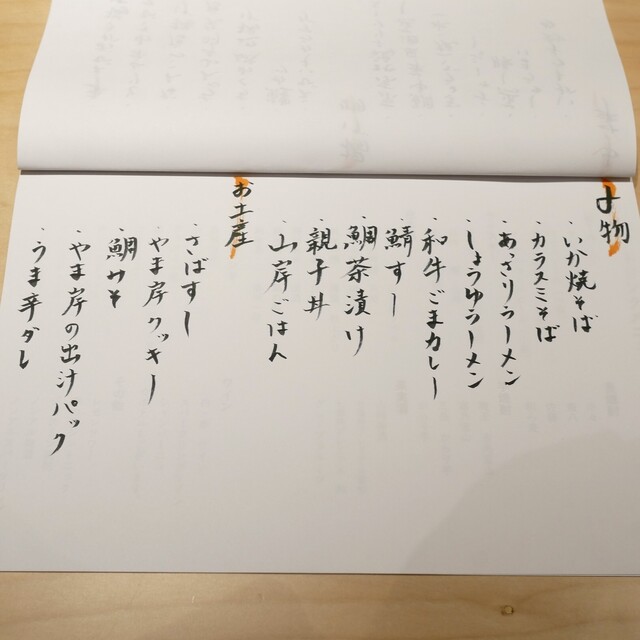 寸物
・いか焼そば
・カラスミそば
・あっさりラーメン
・しょうゆラーメン
・和牛ごまカレー
・鯖すし
・鯛茶漬け
・親子丼
・山岸ごはん
お土産
・さばすし
・やま岸クッキー
・鯛みそ
・やま岸の出汁パック
・うま辛ダレ